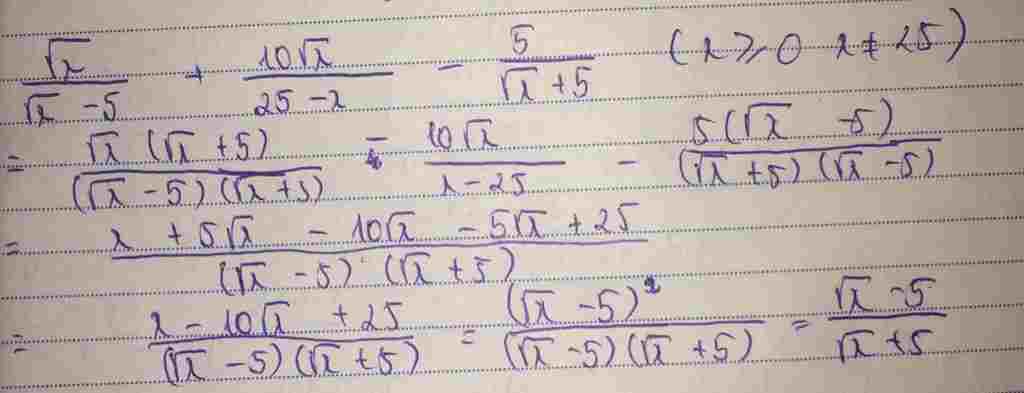 √x / (√x - 5) + 10√x / (25 - x) - 5 / (√x + 5) (x ⩾ 0 x ≠ 25)
= √x (√x + 5) / (√x - 5) (√x + 5) - 10√x / (x - 25) - 5(√x - 5) / (√x + 5) (√x - 5)
= (x + 5√x - 10√x - 5√x + 25) / (√x - 5) (√x + 5)
= (x - 10√x + 25) / (√x - 5) (√x + 5) = (√x - 5)² / (√x - 5) (√x + 5) = (√x - 5) / (√x + 5)